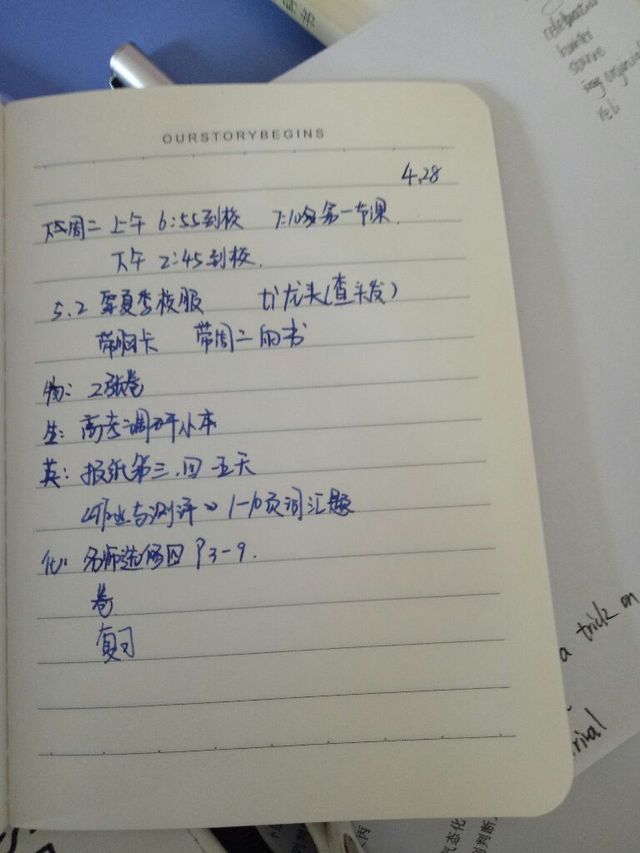 OURSTORYBEGINS
4.28
下周二 上午 6:55到校 7:10 第一节课
下午 2:45到校.
5.2 穿夏季校服 头(查头发)
带胸卡 带周二的书
物: 2张卷
生: 高考调研小本
英: 报纸第三.四 五天
《作业与测评》 1-10页词汇题
化: 名师 四 P3-9.
卷
复习
a trick on
rival